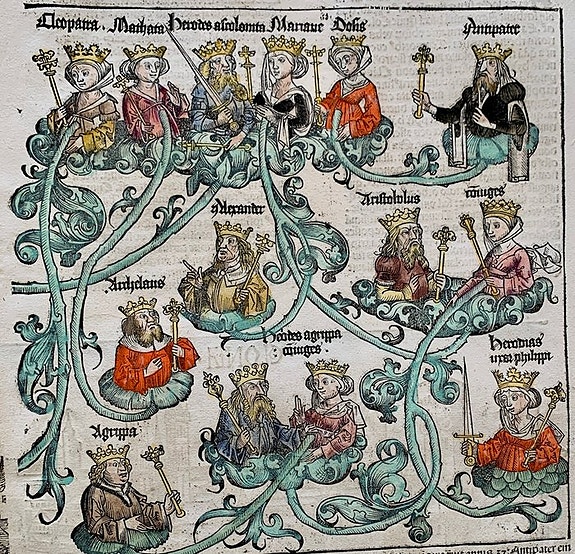 Cleopatra. Mathata Herodes ascolonita Mariane Dosis
Antipater
Alexander
Aristolulus
cōiuges
Archelaus
Herodes agrippa
cōiuges.
Herodias
uxor philippi
Agrippa
Antipater